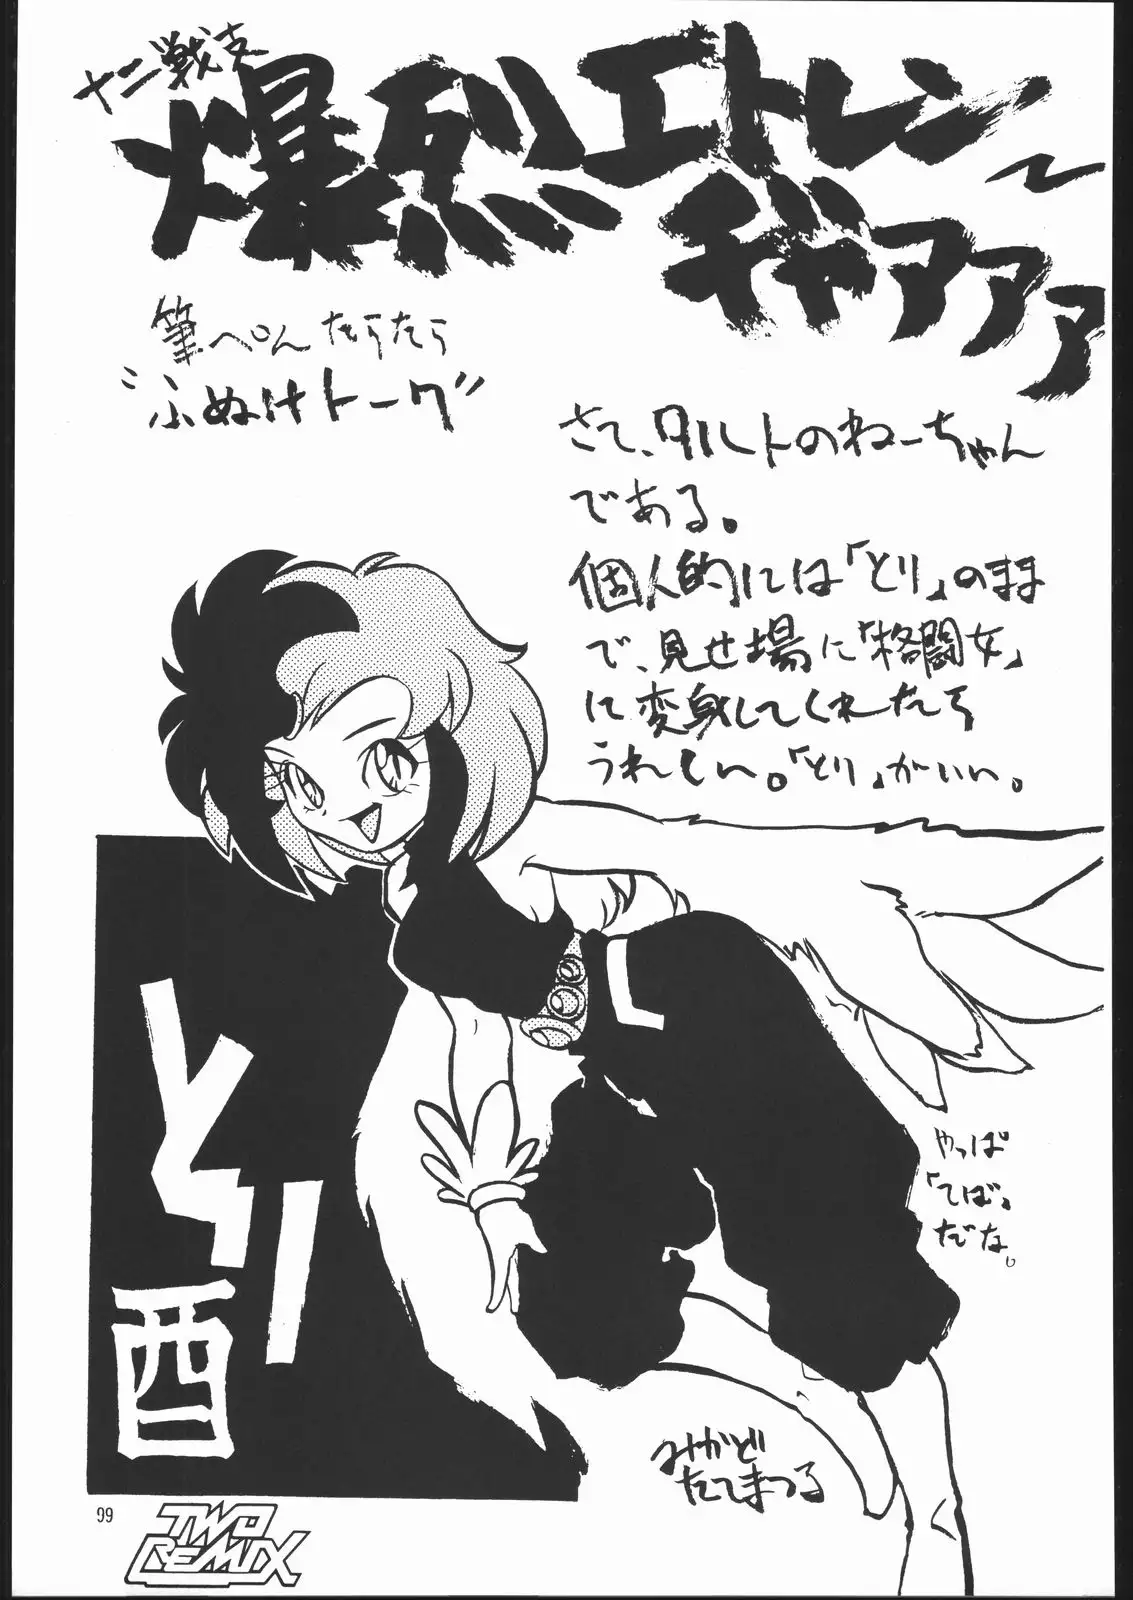 十二戦支
爆烈エトレン〜
ヂャアァァ
筆ぺんたらたら
"ふぬけトーク"
さて、タルトのねーちゃん
である。
個人的には「とり」のまま
で、見せ場に「格闘女」
に変身してくれたら
うれしい。「とり」がいい。
とり
酉
やっぱ
「てば」
だな。
みかど
たてまつる
99
TWO
REMIX